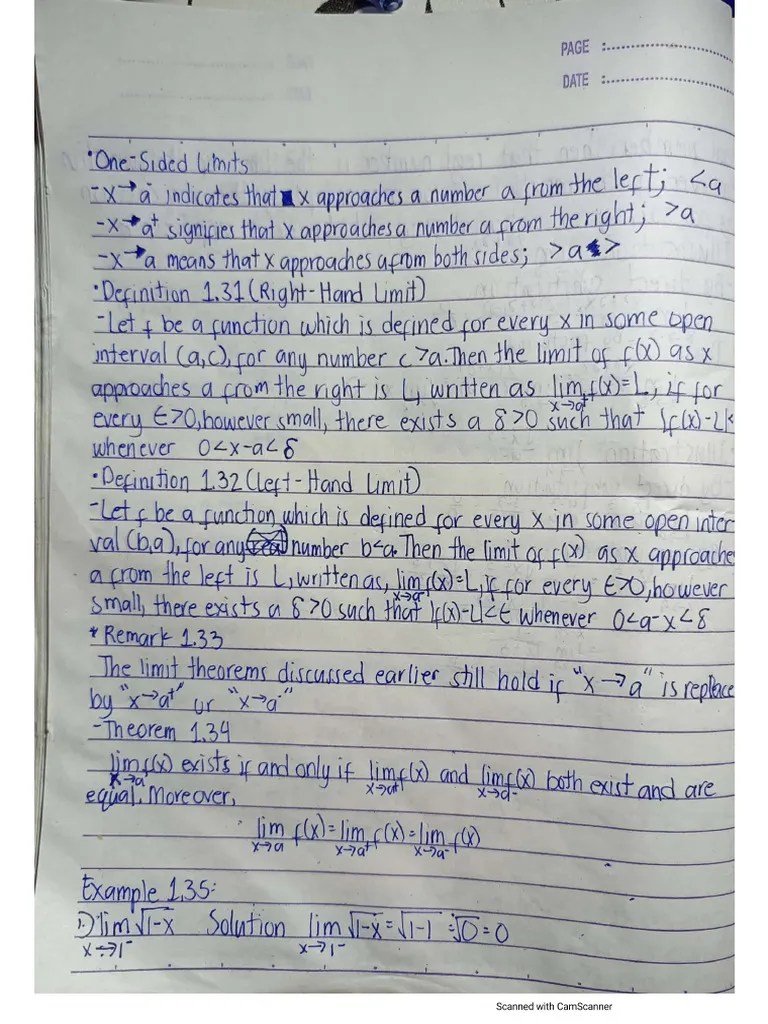 PAGE :
DATE :
•One-Sided Limits
-x→a⁻ indicates that x approaches a number a from the left; <a
-x→a⁺ signifies that x approaches a number a from the right; >a
-x→a means that x approaches a from both sides; >a >
•Definition 1.31 (Right-Hand Limit)
-Let f be a function which is defined for every x in some open
interval (a,c), for any number c>a. Then the limit of f(x) as x
approaches a from the right is L, written as lim x→a⁺ f(x)=L, if for
every ϵ>0, however small, there exists a δ>0 such that |f(x)-L|<
whenever 0<x-a<δ
•Definition 1.32 (Left-Hand Limit)
-Let f be a function which is defined for every x in some open inter
val (b,a), for any number b<a. Then the limit of f(x) as x approache
a from the left is L, written as, lim x→a⁻ f(x)=L, if for every ϵ>0, however
small, there exists a δ>0 such that |f(x)-L|<ϵ whenever 0<a-x<δ
* Remark 1.33
The limit theorems discussed earlier still hold if "x→a" is replace
by "x→a⁺" or "x→a⁻"
-Theorem 1.34
lim x→a f(x) exists if and only if lim x→a⁺ f(x) and lim x→a⁻ f(x) both exist and are
equal. Moreover,
lim x→a f(x)=lim x→a⁺ f(x)=lim x→a⁻ f(x)
Example 1.35:
1.) lim x→1⁻ √1-x Solution lim x→1⁻ √1-x=√1-1=√0=0
Scanned with CamScanner